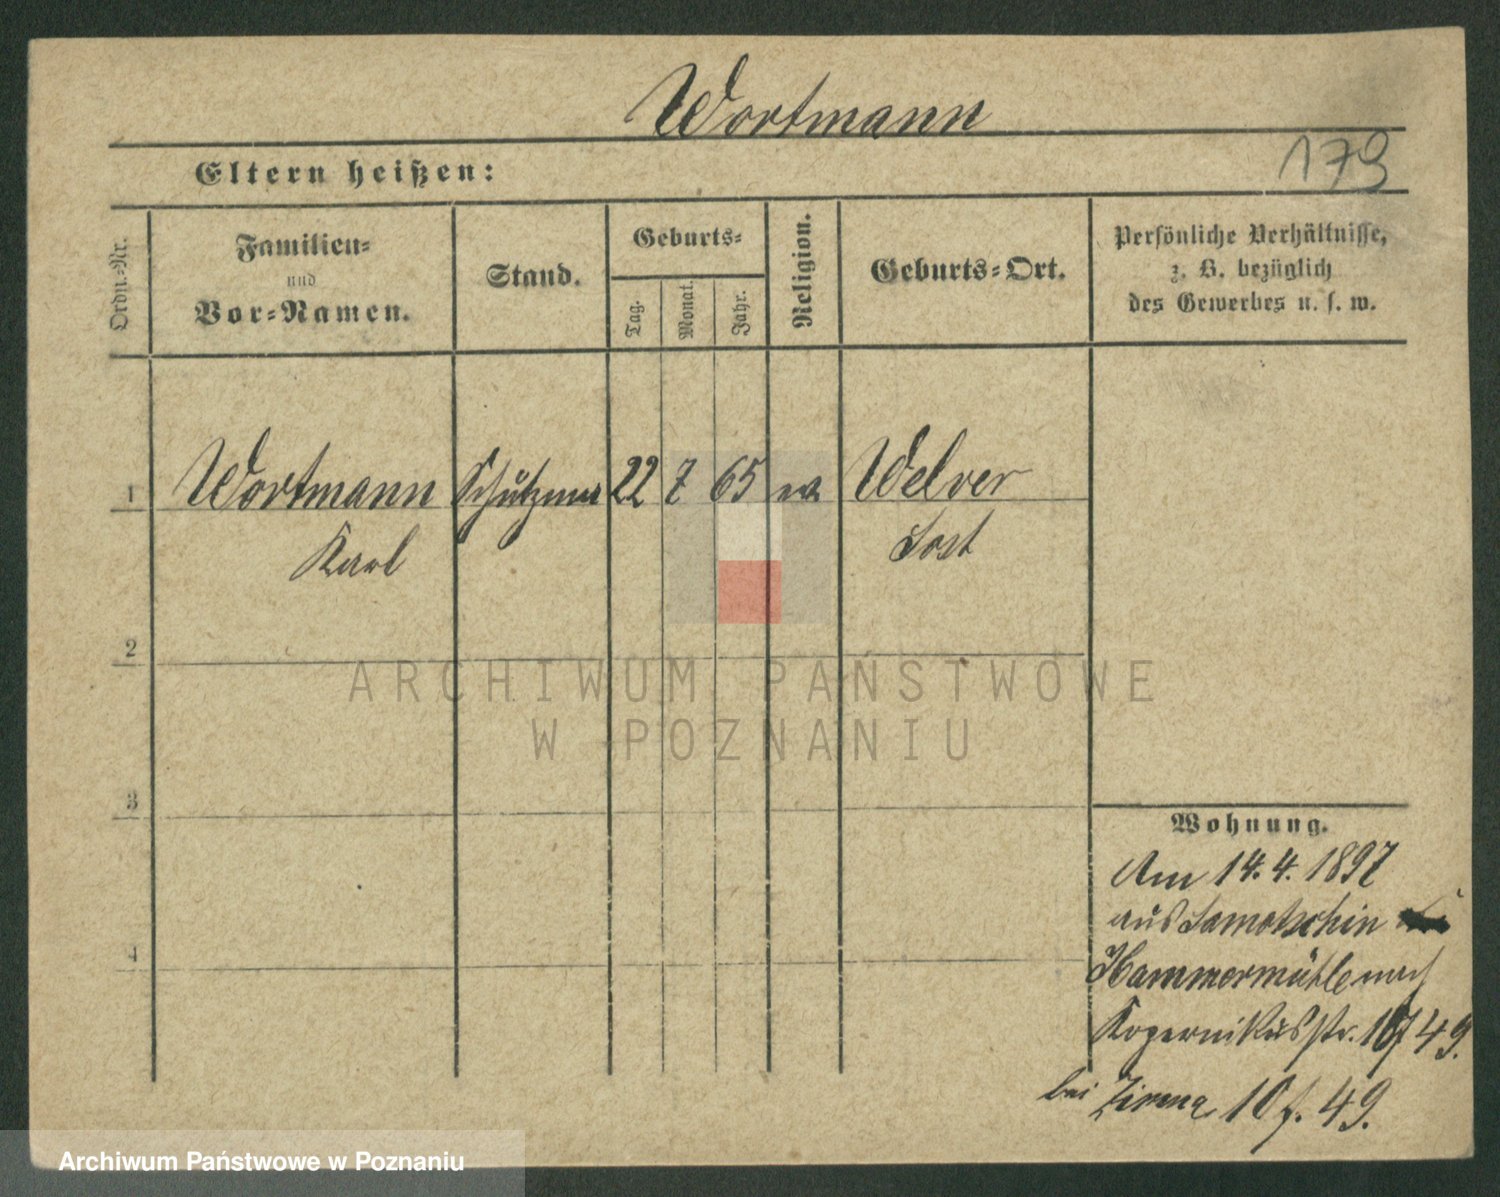 Wortmann
179
Eltern heißen:
Ordn.-Nr.
Familien-
und
Vor-Namen.
Stand.
Geburts-
Tag.
Monat.
Jahr.
Religion.
Geburts-Ort.
Persönliche Verhältnisse,
z. B. bezüglich
des Gewerbes u. s. w.
1 Wortmann Schutzm 22 7 65 ev Welver
Karl Sost
2
3
4
Wohnung.
Am 14.4.1897
aus Samotschin
Hammermühle nach
Kopernikusstr. 49.
bei 10 f. 49.
ARCHIWUM PAŃSTWOWE
W POZNANIU
Archiwum Państwowe w Poznaniu